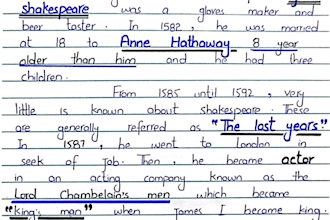 shakespeare was a gloves maker and
beer taster. In 1582, he was married
at 18 to Anne Hathaway 8 year
older than him and he had three
children.
From 1585 until 1592, very
little is known about shakespeare. These
are generally referred as "The last years"
In 1587, he went to London in
seek of job. Then, he became actor
in an acting company known as the
Lord Chambelain's men which became
"king's man" when James I became king.